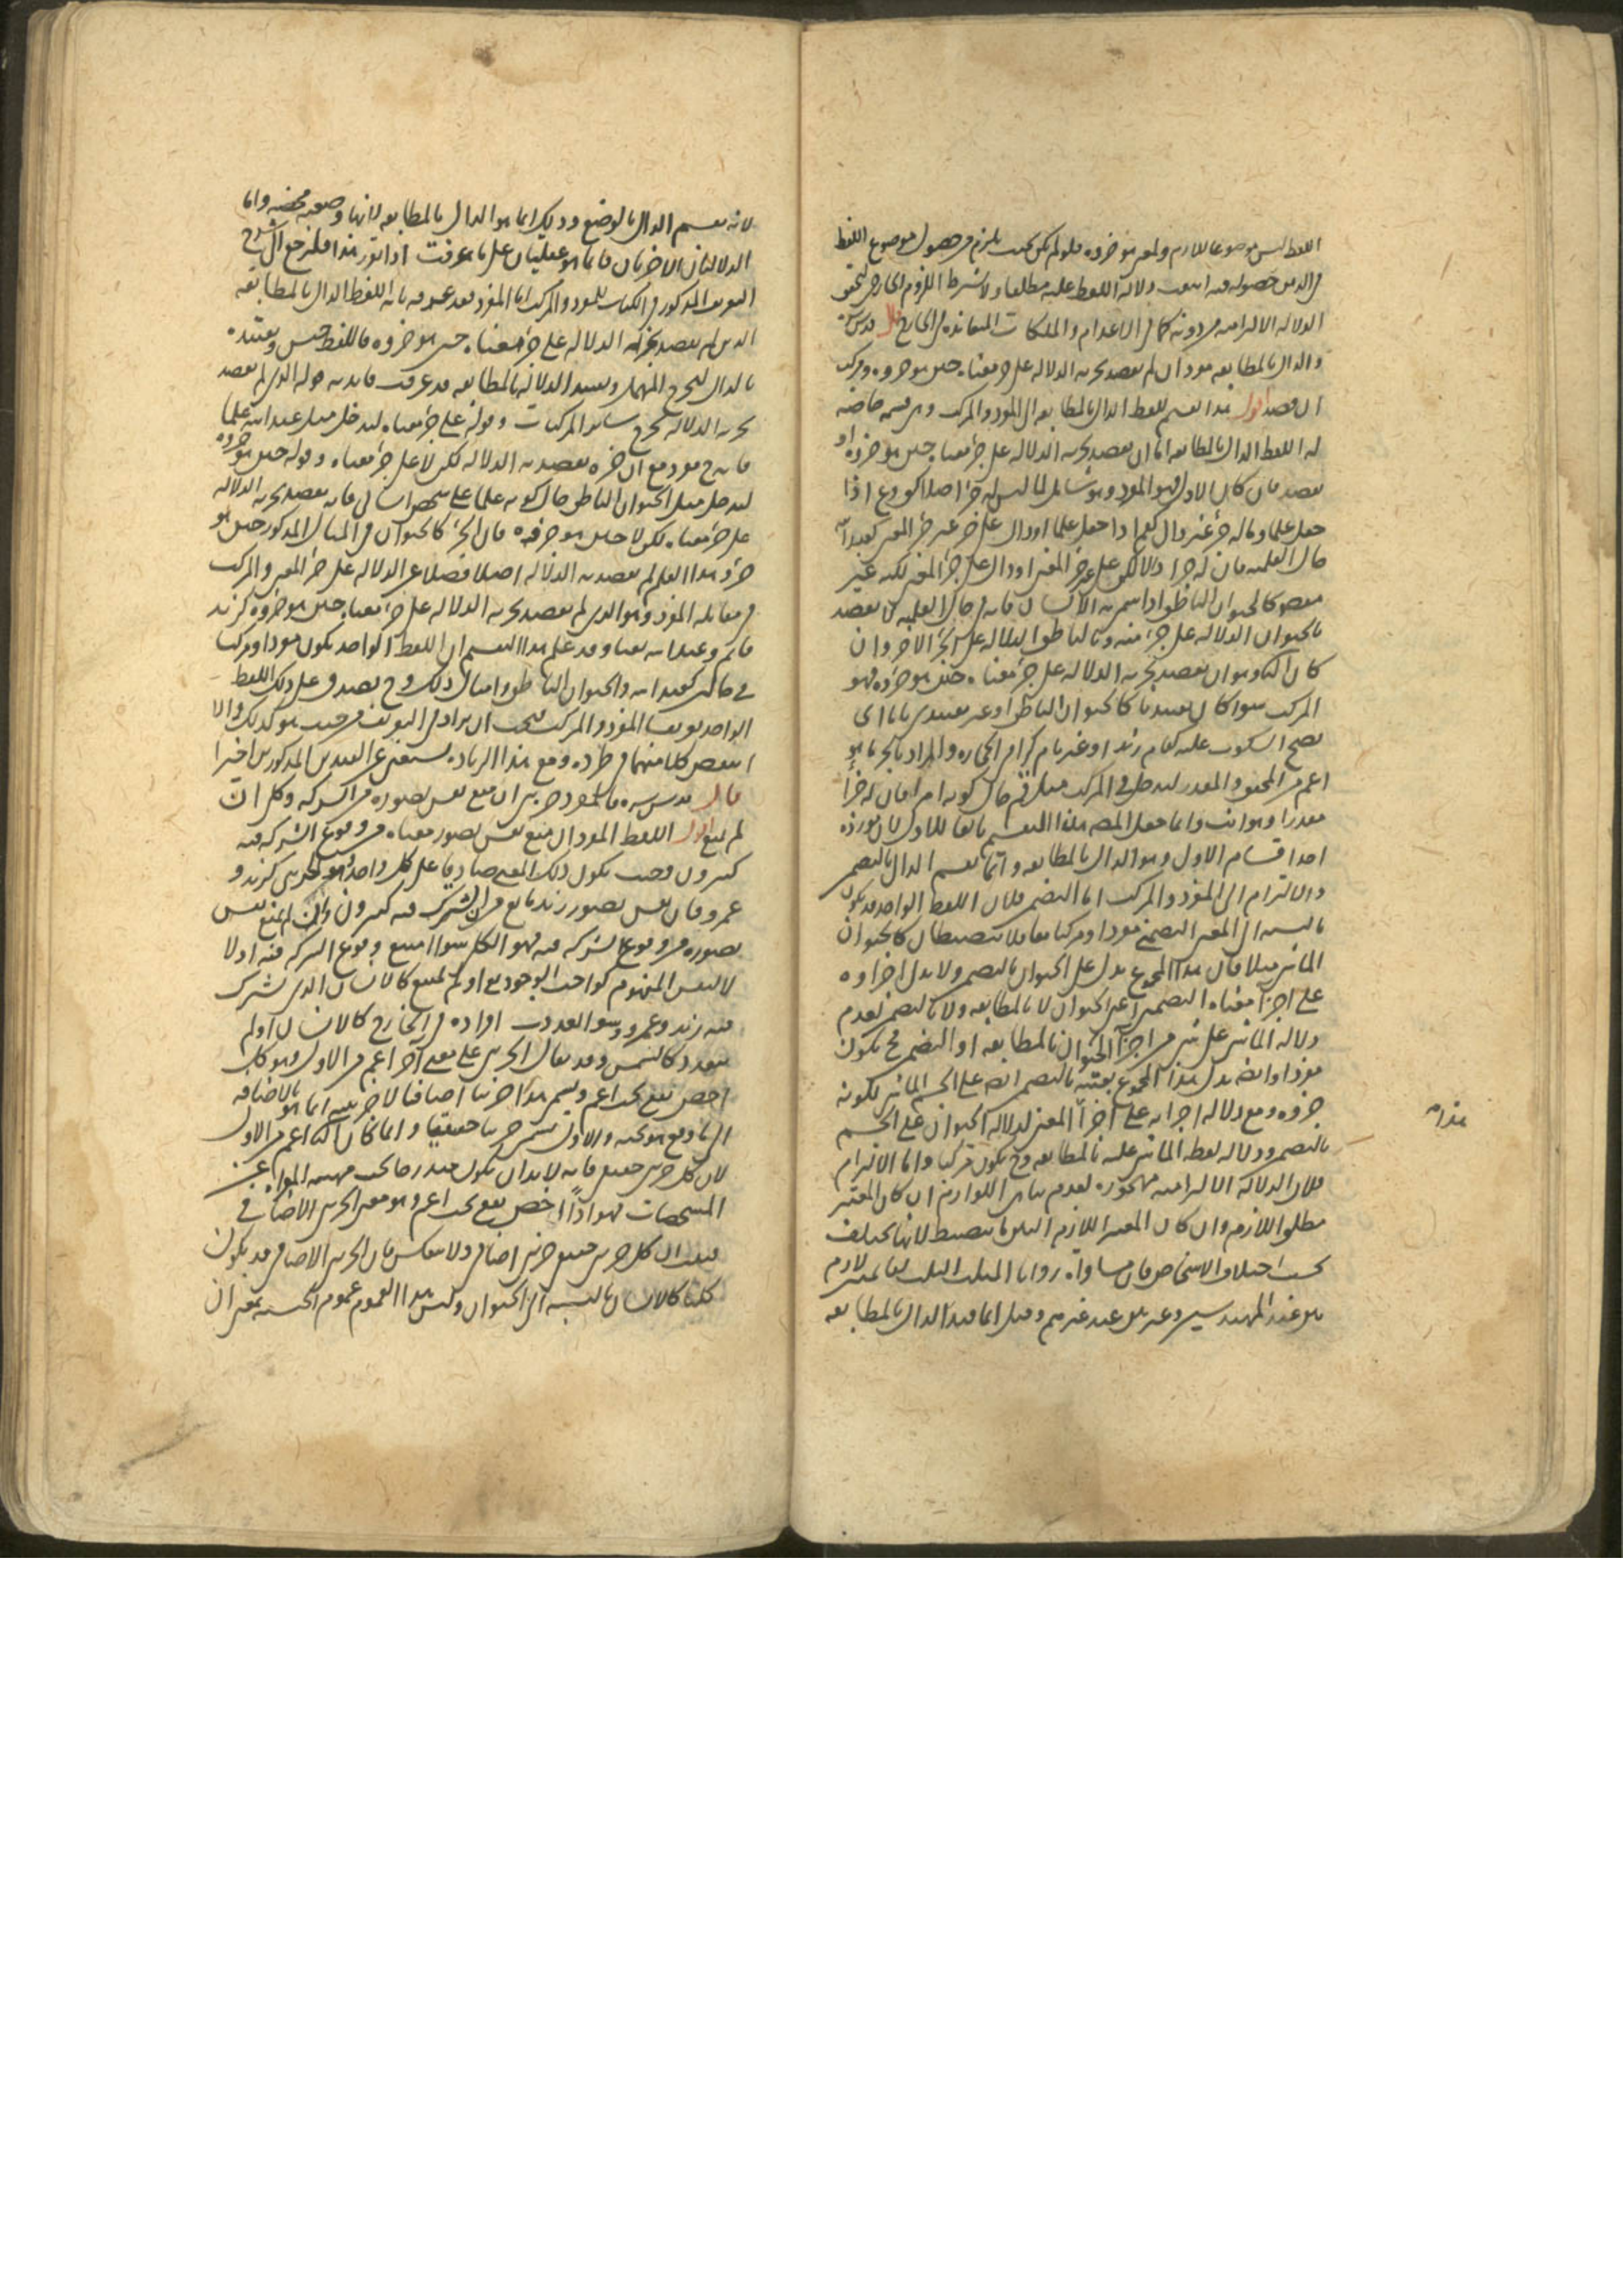 اللفظ ليس موضوعا للازم ولمعنى هو جزؤه فلو لم يكن بحيث يلزم من حصول موضوع اللفظ
في الذهن حصوله فيه امتنعت دلالة اللفظ عليه مطلقا ولا يشترط اللزوم الخارجي لتحقق
الدلالة الالتزامية من دونه كما في الاعدام والملكات المتعاندة في الخارج قال قدس سره
والدال بالمطابقة مفرد ان لم يقصد بجزئه الدلالة على جزء معناه حين هو جزؤه ومركب
ان قصد اقول هذا تقسيم للفظ الدال بالمطابقة الى المفرد والمركب وهي قسمة حاصرة
له اللفظ الدال بالمطابقة اما ان يقصد بجزئه الدلالة على جزء معناه حين هو جزؤه او
يقصد فان كان الاول فهو المفرد وهو شامل لما ليس له جزء اصلا كق وع اذا
جعل علما وما له جزء غير دال كقم اذا جعل علما او دال على جزء غير جزء المعنى كعبد الله
حال العلمية فان له جزءا دالا لكن على غير جزء المعنى او دال على جزء المعنى لكنه غير
مقصود كالحيوان الناطق اذا سمي به الانسان فانه في حال العلمية لا يقصد
بالحيوان الدلالة على جزء منه وبالناطق الدلالة على الجزء الاخر وان
كان الثاني وهو ان يقصد بجزئه الدلالة على جزء معناه حين هو جزؤه فهو
المركب سواء كان تقييديا كالحيوان الناطق او غير تقييدي تاما اي
يصح السكوت عليه كقام زيد او غير تام كرامي الحجارة والمراد بالجزء ما هو
اعم من المحقق والمقدر ليدخل في المركب مثل قم حال كونه امرا فان له جزءا
مقدرا وهو انت وانما جعل المصنف هذا التقسيم تابعا للاول لان مورده
احد اقسام الاول وهو الدال بالمطابقة وانما لم يقسم الدال بالتضمن
والالتزام الى المفرد والمركب اما التضمن فلان اللفظ الواحد قد يكون
بالنسبة الى المعنى التضمني مفردا ومركبا معا فلا ينضبطان كالحيوان
الماشي مثلا فان هذا المجموع يدل على الحيوان بالتضمن ولا يدل اجزاؤه
على اجزاء معناه التضمني اعني الحيوان لا بالمطابقة ولا بالتضمن لعدم
دلالة الماشي على شيء من اجزاء الحيوان بالمطابقة او التضمن فح يكون
مفردا وايضا يدل هذا المجموع بعينه بالتضمن ايضا على الجسم الماشي لكونه
جزؤه ومع دلالة اجزائه على اجزاء المعنى لدلالة الحيوان على الجسم
بالتضمن ودلالة لفظ الماشي عليه بالمطابقة وح يكون مركبا واما الالتزام
فلان الدلالة الالتزامية مهجورة لعدم تناهي اللوازم ان كان المعتبر
مطلق اللازم وان كان المعتبر اللازم البين ما ينضبط لانها تختلف
بحسب اختلاف الاشخاص فان مساواة زوايا المثلث الثلث لقائمتين لازم
بين عند المهندسين وغير بين عند غيرهم وقيل انما قيد الدال بالمطابقة
لانه يقسم الدال بالوضع وذلك انما هو الدال بالمطابقة لانها وضعية محضة واما
الدلالتان الاخريان فانما هو عقليتان على ما عرفت اذا تقرر هذا فلنرجع الى شرح
التعريف المذكور في الكتاب للمفرد والمركب اما المفرد فقد عرفه بانه اللفظ الدال بالمطابقة
الذي لم يقصد بجزئه الدلالة على جزء معناه حين هو جزؤه فاللفظ جنس وتقييده
بالدال ليخرج المهمل وتقييد الدلالة بالمطابقة قد عرفت فايدته قوله الذي لم يقصد
بجزئه الدلالة يخرج سائر المركبات وقوله على جزء معناه ليدخل مثل عبد الله علما
فانه ح مفرد مع ان جزءه يقصد به الدلالة لكن لا على جزء معناه وقوله حين هو جزؤه
ليدخل مثل الحيوان الناطق حال كونه علما على شخص انساني فانه يقصد بجزئه الدلالة
على جزء معناه لكن لا حين هو جزؤه فان الجزء كالحيوان في المثال المذكور حين هو
جزء هذا العلم لم يقصد به الدلالة اصلا فضلا عن الدلالة على جزء المعنى والمركب
في مقابلة المفرد وهو الذي لم يقصد بجزئه الدلالة على جزء معناه حين هو جزؤه كزيد
قائم وعبد الله نعتا وقد علم من هذا التقسيم ان اللفظ الواحد يكون مفردا ومركبا
في حالتين كعبد الله والحيوان الناطق وامثال ذلك وح يصدق على ذلك اللفظ
الواحد تعريفا المفرد والمركب فيجب ان يراد في التعريف من حيث هو كذلك والا
انتقض كل منهما في طرده ومع هذا الزيادة يستغنى عن القيدين المذكورين اخيرا
قال قدس سره فالمفرد جزئي ان منع نفس تصوره من الشركة وكلي ان
لم يمنع اقول اللفظ المفرد ان منع نفس تصور معناه من وقوع الشركة فيه
كثيرون بحيث يكون ذلك المعنى صادقا على كل واحد فهو الجزئي كزيد و
عمرو فان نفس تصور زيد مانع من ان يشترك فيه كثيرون وان لم يمنع نفس
تصوره من وقوع الشركة فيه فهو الكلي سواء امتنع وقوع الشركة فيه او لا
لا لنفس المفهوم كواجب الوجود تع او لم يمتنع كالانسان الذي يشترك
فيه زيد وعمرو وسواء تعددت افراده في الخارج كالانسان او لم
يتعدد كالشمس وقد يقال الجزئي على معنى آخر اعم من الاول وهو كل
اخص يقع تحت اعم ويسمى هذا جزئيا اضافيا لان جزئيته انما هو بالاضافة
الى ما وقع هو تحته والاول يسمى جزئيا حقيقيا وانما كان الثاني اعم من الاول
لان كل جزئي حقيقي فانه لا بد ان يكون مندرجا تحت مهيته المعراة عن
المشخصات فهو اذا اخص يقع تحت اعم وهو معنى الجزئي الاضافي
فثبت ان كل جزئي حقيقي جزئي اضافي ولا ينعكس فان الجزئي الاضافي قد يكون
كليا كالانسان بالنسبة الى الحيوان وليس هذا العموم عموم الجنسية بمعنى ان